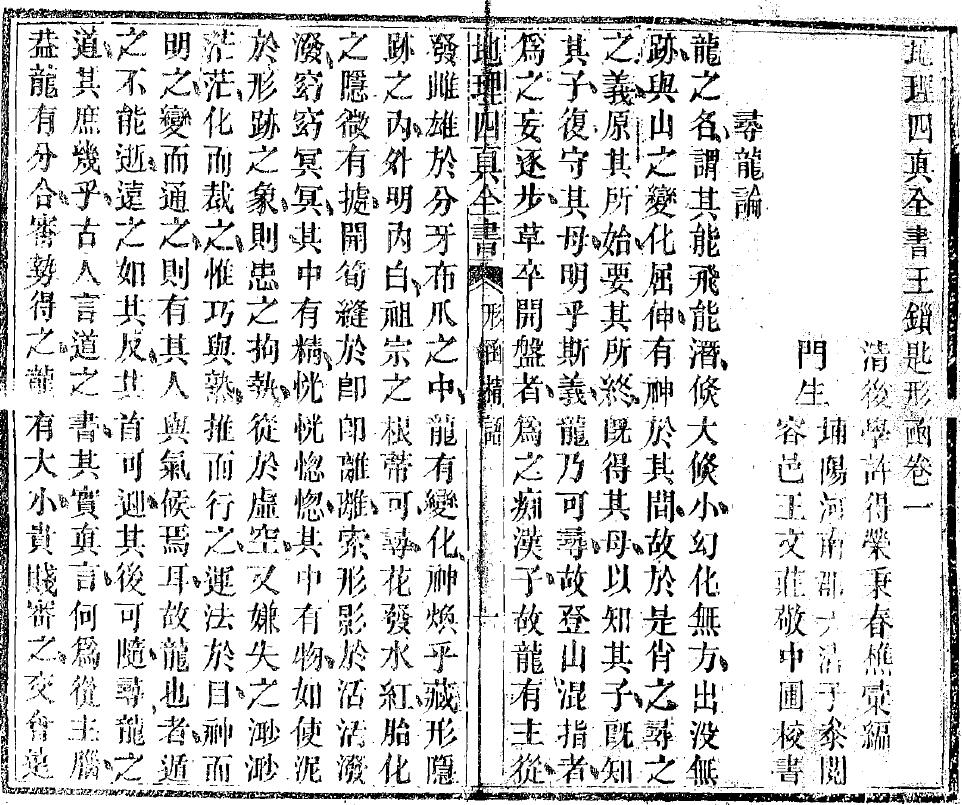 地理四真全書王鎖匙形函卷一
清後學許得榮秉春樵彙編
門生
埔陽河南郡方浩子參閱
容邑王文莊敬中圃校書
尋龍論
龍之名謂其能飛能潛倏大倏小幻化無方出没無
跡與山之變化屈伸有神於其間故於是肖之尋之
之義原其所始要其所終既得其母以知其子既知
其子復守其母明乎斯義龍乃可尋故登山混指者
爲之妄逐步草卒開盤者爲之痴漢子故龍有主從
地理四真全書
形函精語
一
發雌雄於分牙布爪之中龍有變化神煥乎藏形隱
跡之內外明內白祖宗之根蒂可尋花發水紅胎化
之隱微有據開筍縫於郎郎離離索形影於活活潑
潑窈窈冥冥其中有精恍恍惚惚其中有物如使泥
於形跡之象則患之拘執從於虛空又嫌失之渺渺
茫茫化而裁之惟巧與熟推而行之運法於目神而
明之變而通之則有其人與氣候焉耳故龍也者遁
之不能逝遠之如其反其首可迎其後可隨尋龍之
道其庶幾乎古人言道之書其實真言何爲從主腦
葢龍有分合審勢得之龍有大小貴賤審之交會是